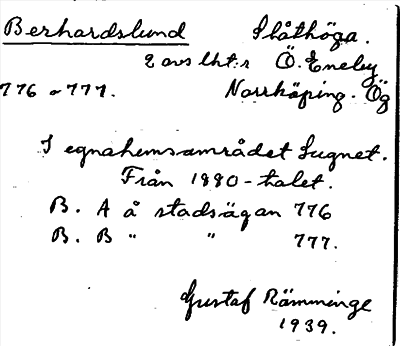 Berhardslund Slåthöga.
2 avs lht:r Ö. Eneby
776 o 777. Norrköping. Ög
I egnahemsområdet Lugnet.
Från 1880-talet.
B. A å stadsägan 776
B. B " " 777.
Gustaf Rämminge
1939.